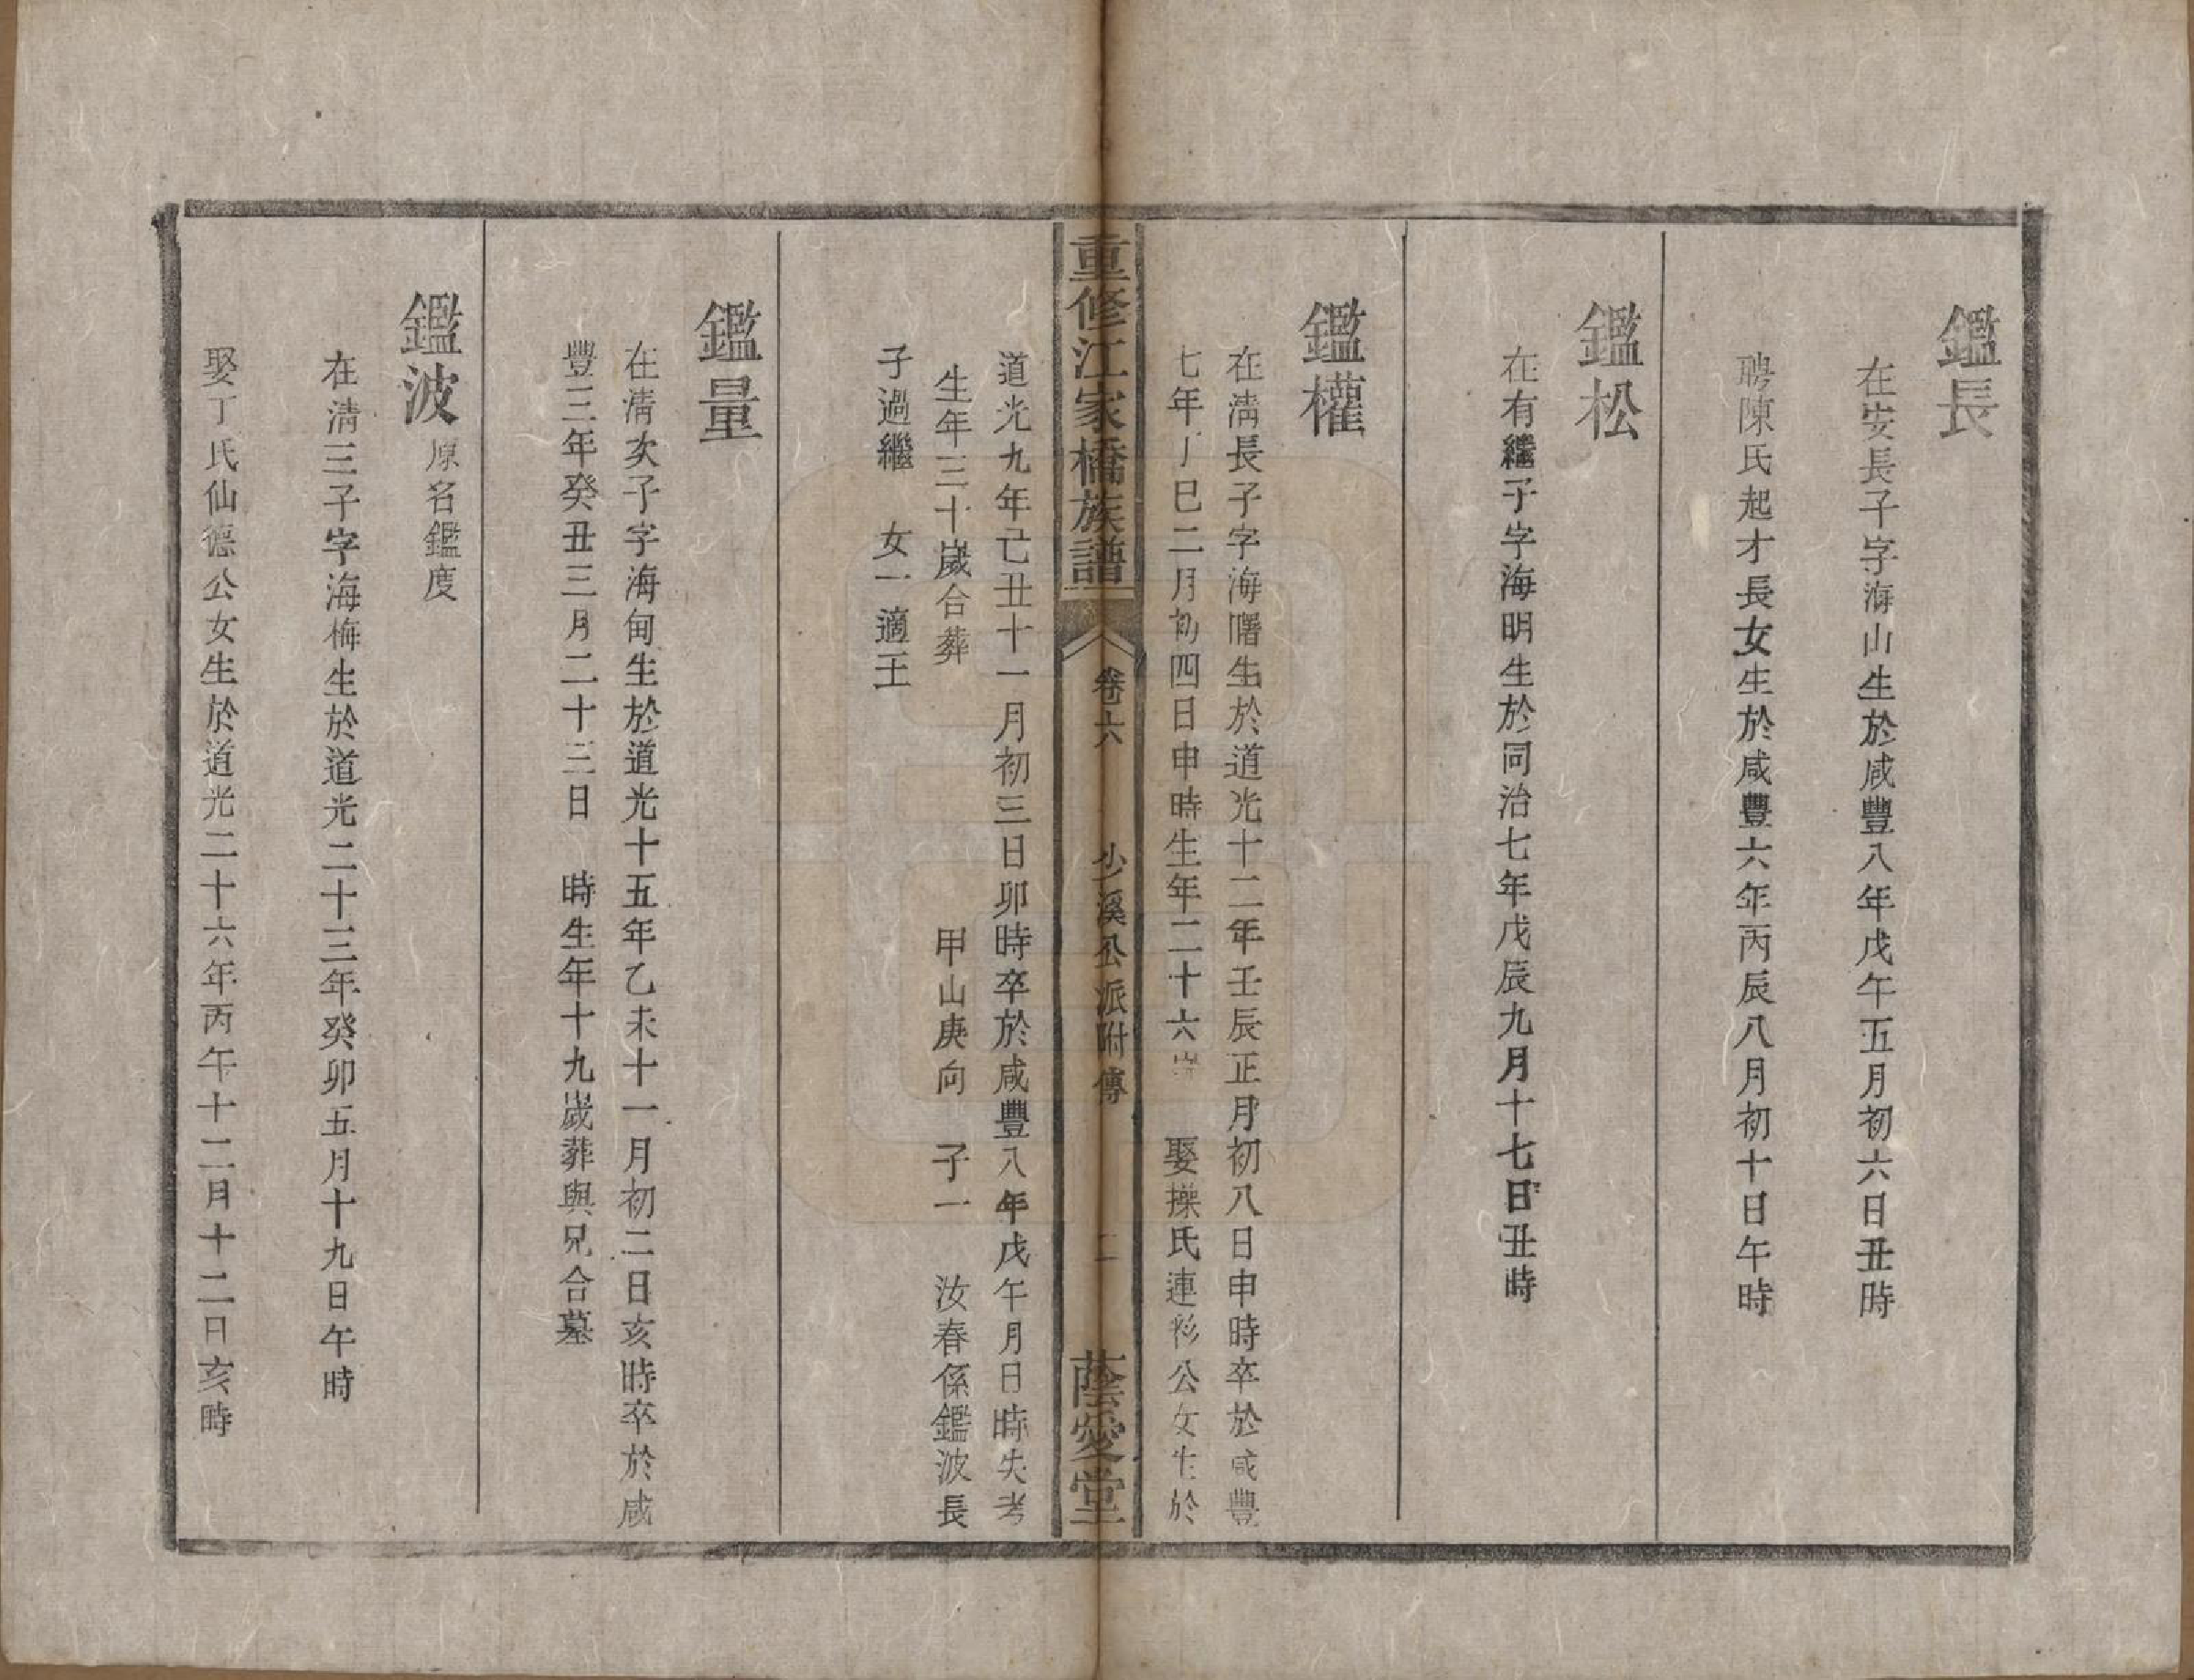 鑑長
在安長子字海山生於咸豐八年戊午五月初六日丑時
聘陳氏起才長女生於咸豐六年丙辰八月初十日午時
鑑松
在有繼子字海明生於同治七年戊辰九月十七日丑時
鑑權
在清長子字海曙生於道光十二年壬辰正月初八日申時卒於咸豐
七年丁巳二月初四日申時生年二十六歲 娶操氏連衫公女生於
重修江家橋族譜 卷六 少溪公派附傳 二 蔭愛堂
道光九年己丑十一月初三日卯時卒於咸豐八年戊午月日時失考
生年三十歲合葬 甲山庚向 子一 汝春係鑑波長
子過繼 女一適王
鑑量
在清次子字海甸生於道光十五年乙未十一月初二日亥時卒於咸
豐三年癸丑三月二十三日 時生年十九歲葬與兄合墓
鑑波 原名鑑度
在清三子字海梅生於道光二十三年癸卯五月十九日午時
娶丁氏仙德公女生於道光二十六年丙午十二月十二日亥時